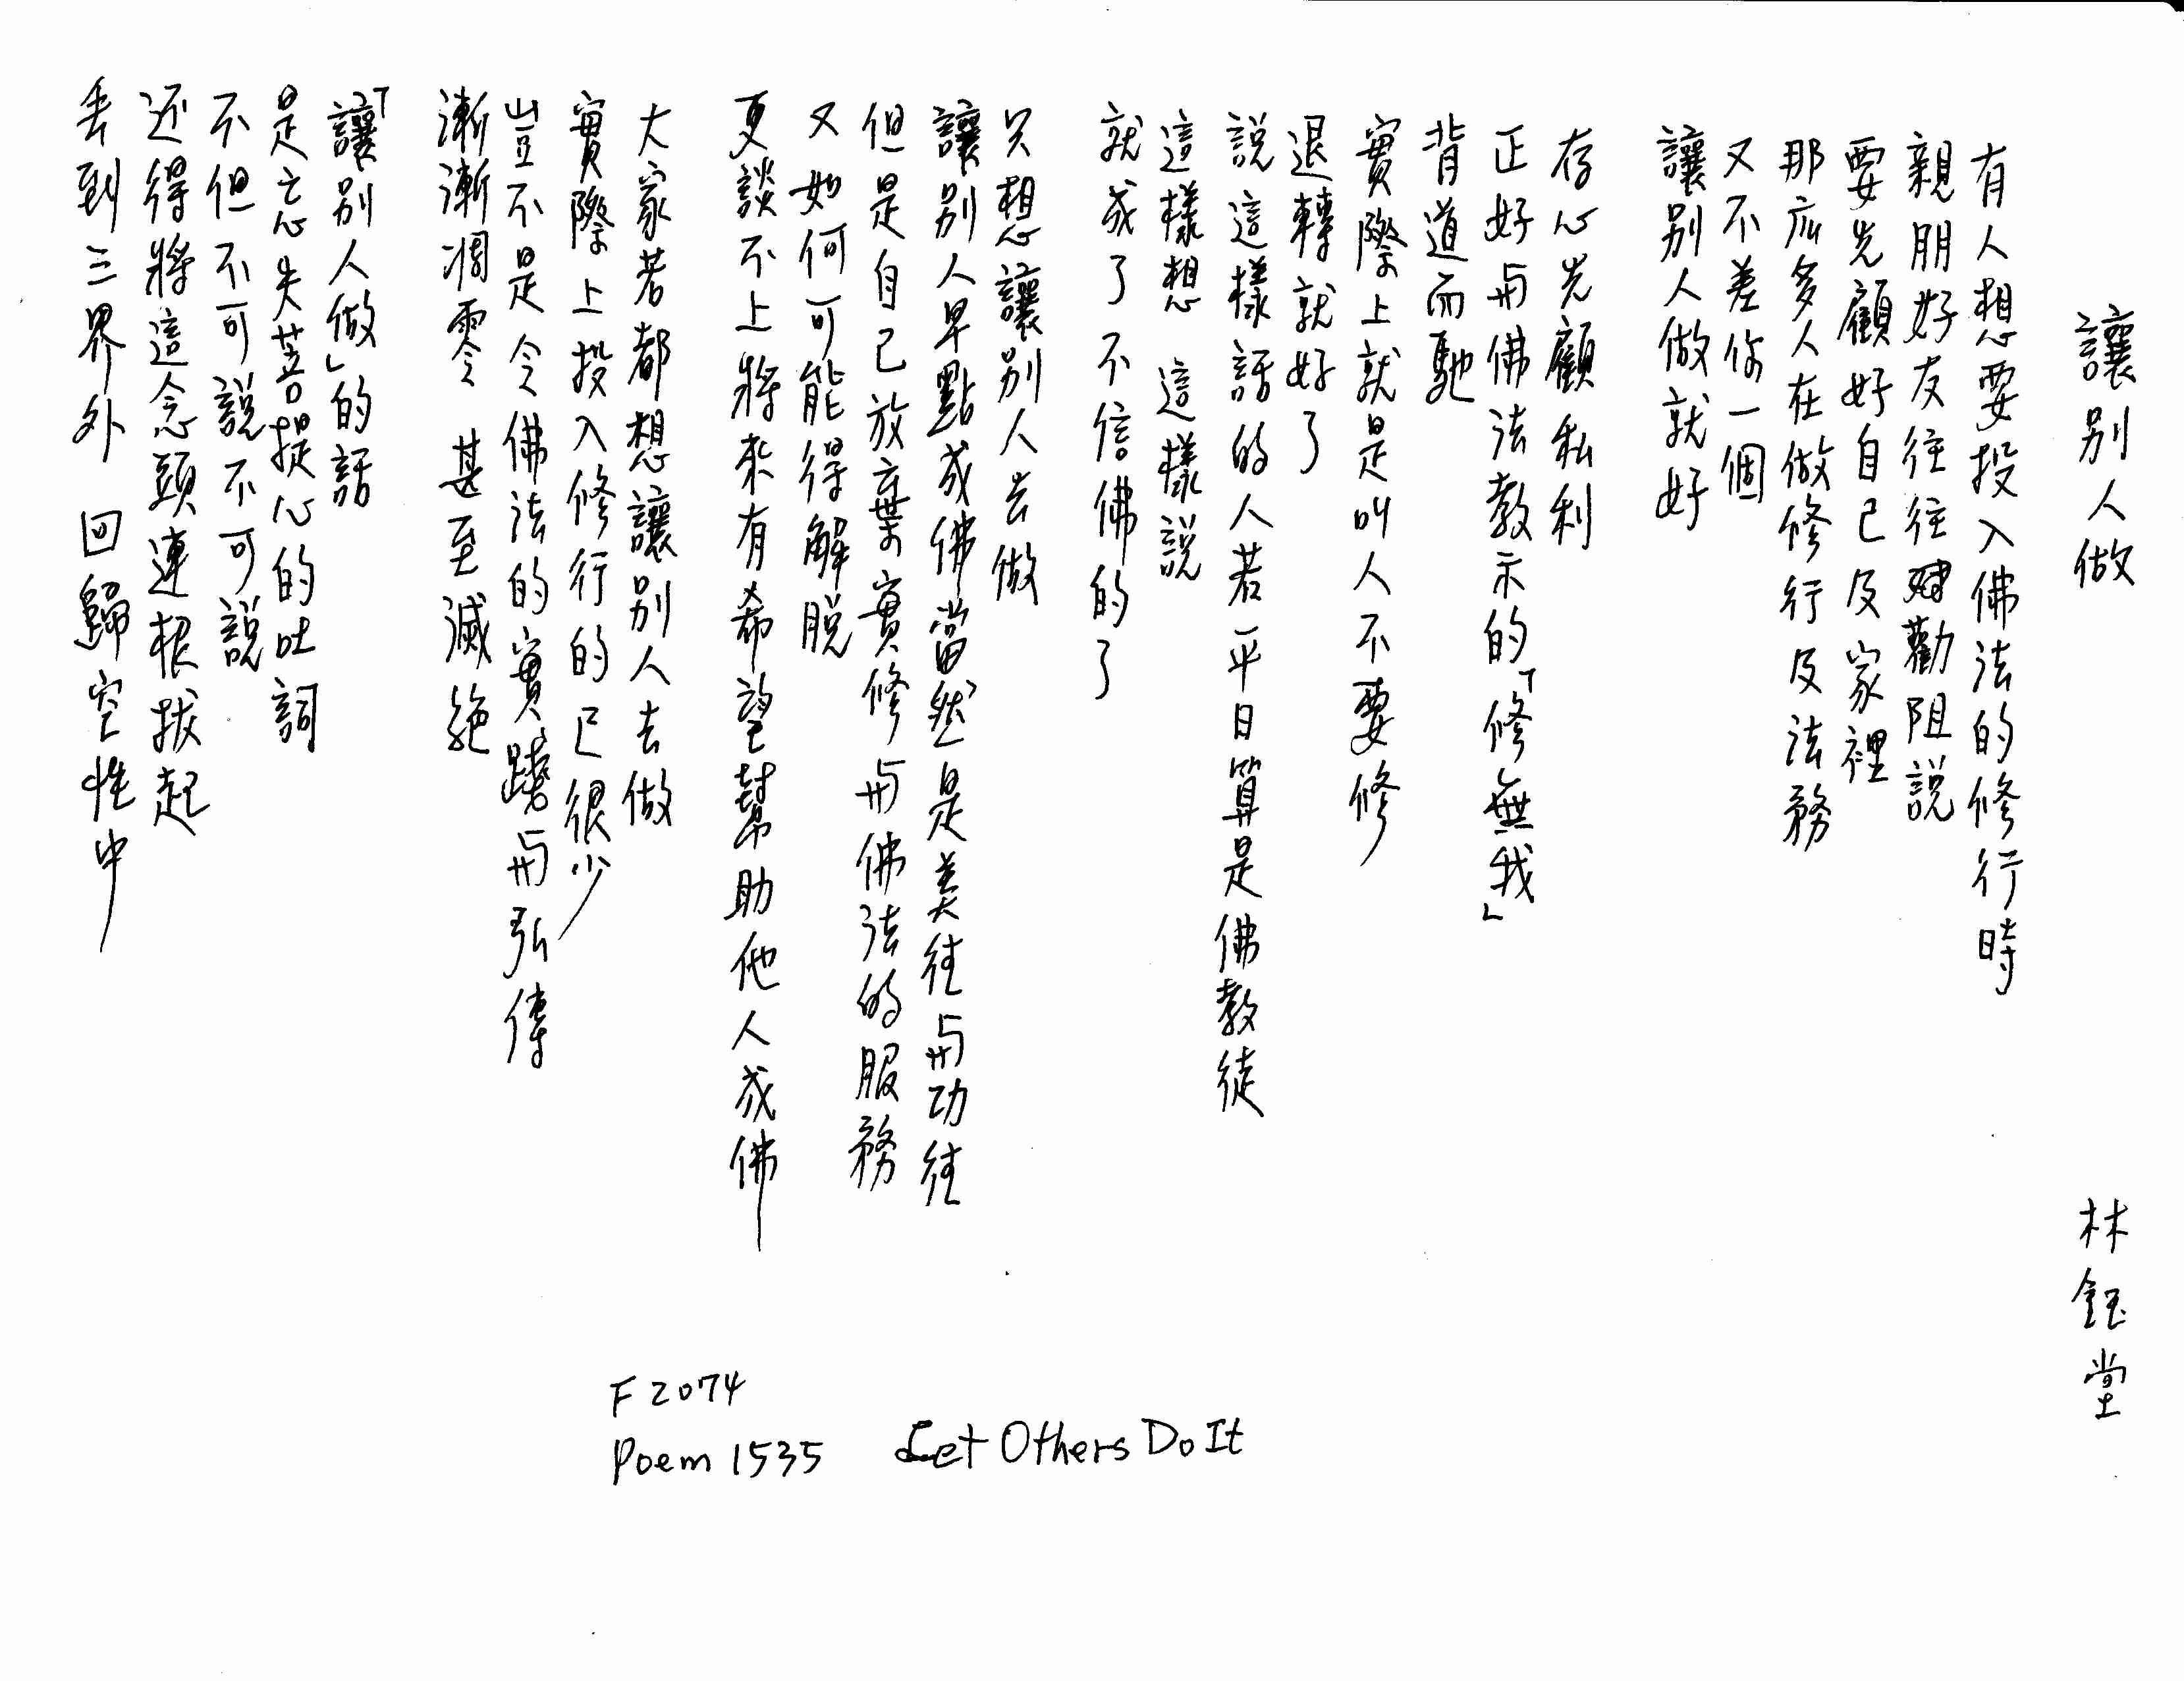 讓別人做
林鈺堂
有人想要投入佛法的修行時
親朋好友往往勸阻說
要先顧好自己及家裡
那庅多人在做修行及法務
又不差你一個
讓別人做就好
存心先顧私利
正好与佛法教示的「修無我」
背道而馳
實際上就是叫人不要修
退轉就好了
說這樣話的人若平日算是佛教徒
這樣想 這樣說
就成了不信佛的了
只想讓別人去做
讓別人早點成佛當然是美徃与功徃
但是自己放棄實修与佛法的服務
又如何可能得解脫
更談不上將來有希望幫助他人成佛
大家若都想讓別人去做
實際上投入修行的已很少
豈不是令佛法的實踐与弘傳
漸漸凋零 甚至滅絕
「讓別人做」的話
是忘失菩提心的吐詞
不但不可說不可說
还得將這念頭連根拔起
丢到三界外 回歸空性中
F 2074
Poem 1535 Let Others Do It